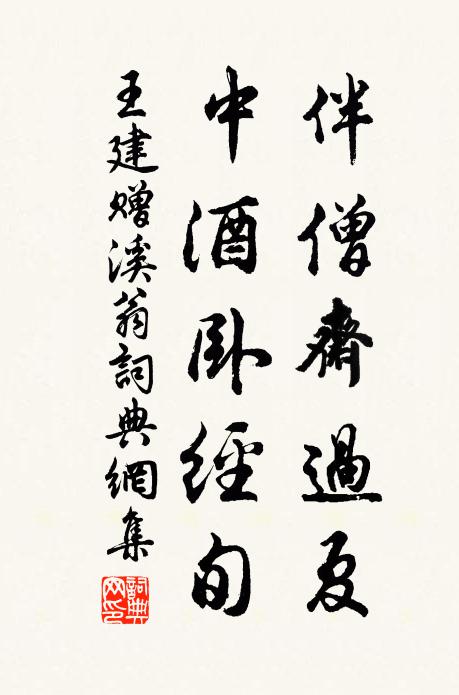 伴僧齋過夏
中酒卧經旬
王建贈溪翁詞典網集
詞典
网印